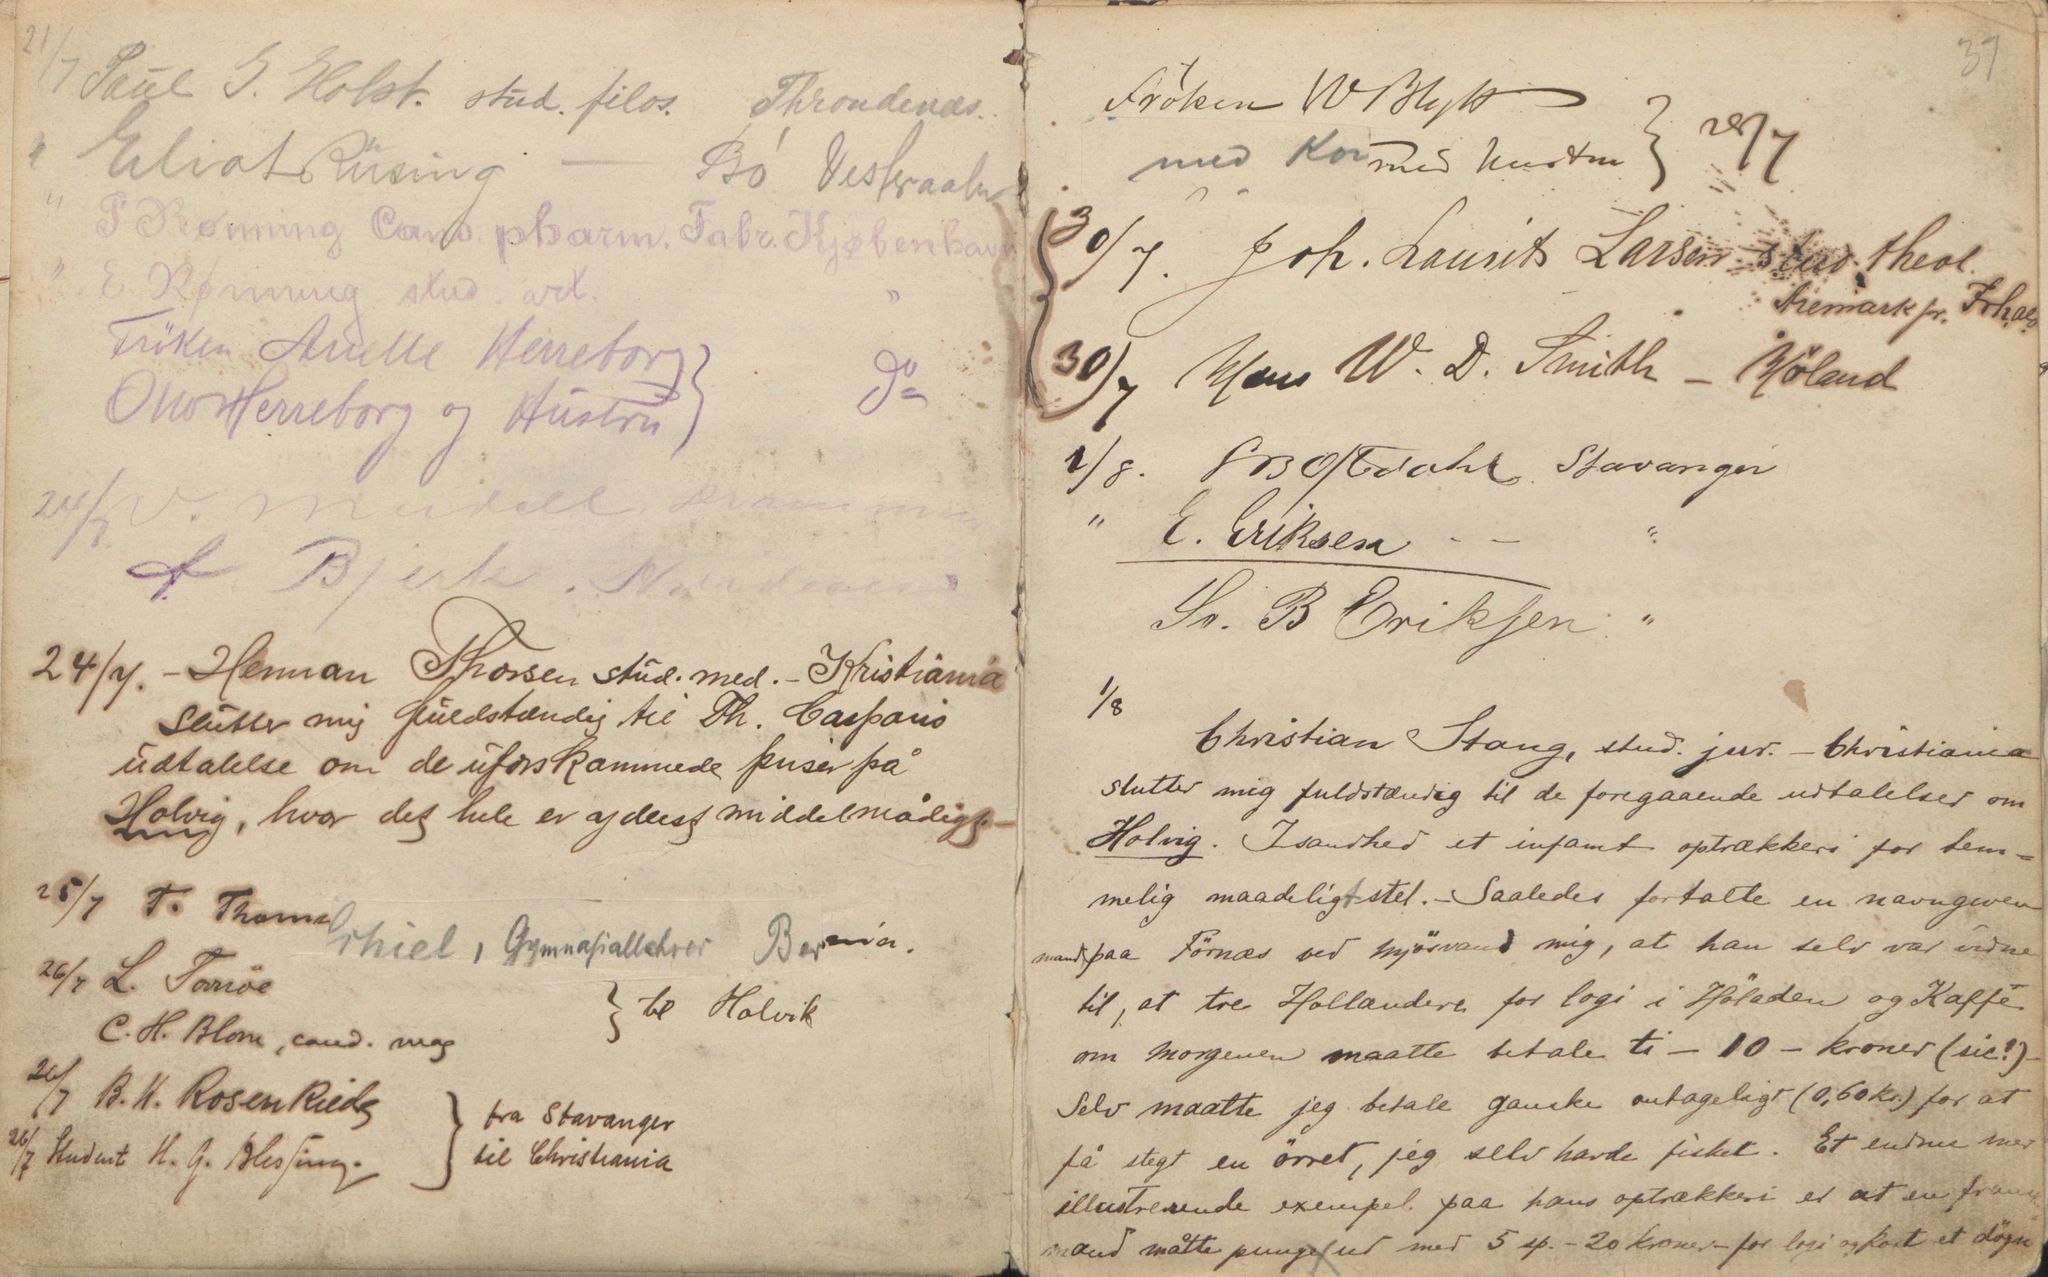 21/7 Paul G. Holst. stud. filos. Throndenæs.
" Eiliat Rüsing — Bö Vesteraalen
" P Rønning Cand. pharm. Fabr. Kjøbenhavn
" E Rønning stud. art. "
Fröken Anette Herreborg
Otto Herreborg og Hustru } do
24/7 V.
Bjerk.
24/7. - Herman Thorsen stud. med. - Kristiania
slutter mig fuldstændig til Th. Casparis
udtalelse om de uforskammede priser på
Holvig, hvor det hele er yderst middelmådigt. -
25/7 T. Thom
Thiel, Gymnasiallehrer
26/7 L. Torsöe
C. H. Blom, cand. mag } til Holvik
26/7 B. H. Rosenkilde
26/7 Student H. G. Blessing. } fra Stavanger
til Christiania
37
Fröken W Blytt
med Kone med hustru } 28/7
30/7. Joh. Laurits Larsen stud. theol.
Aremark pr. Frhald
30/7 Hans W. D. Smith - Höland
1/8. Stavanger
" E. Eriksen - - "
Sv. B Eriksen "
1/8
Christian Stang, stud. jur. - Christiania
slutter mig fuldstændig til de foregaaende udtalelser om
Holvig. I sandhed et infamt optrækkeri for tem=
melig maadeligt stel. - Saaledes fortalte en navngiven
mand paa Förnæs ved Mjösvand mig, at han selv var vidne
til, at tre Hollændere for logi i Höladen og Kaffe
om morgenen maatte betale ti - 10 - kroner (sic!) -
Selv maatte jeg betale ganske antageligt (0,60 kr.) for at
få stegt en örret, jeg selv havde fisket. Et endnu mer
illustrerende exempel paa hans optrækkeri er at en fransk-
mand måtte punge ud med 5 sp. - 20 kroner - for logi og kost et dögn